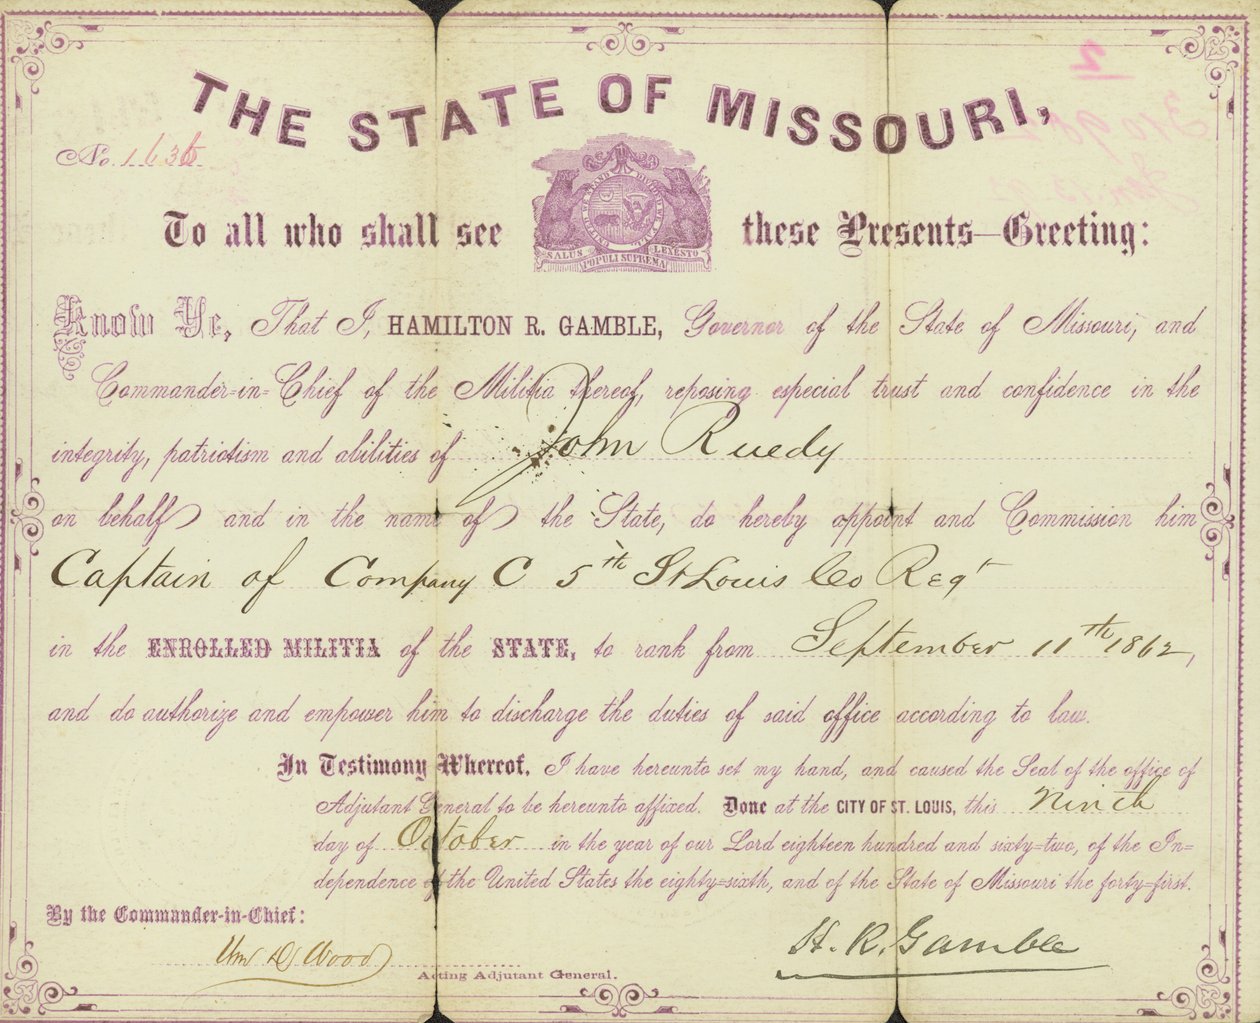 THE STATE OF MISSOURI,
No. 1636
To all who shall see these Presents—Greeting:
SALUS POPULI SUPREMA LEX ESTO
Know Ye, That I, HAMILTON R. GAMBLE, Governor of the State of Missouri, and
Commander-in-Chief of the Militia thereof, reposing especial trust and confidence in the
integrity, patriotism and abilities of John Ruedy
on behalf and in the name of the State, do hereby appoint and Commission him
Captain of Company C 5th St Louis Co Regt
in the ENROLLED MILITIA of the STATE, to rank from September 11th 1862,
and do authorize and empower him to discharge the duties of said office according to law.
In Testimony Whereof, I have hereunto set my hand, and caused the Seal of the office of
Adjutant General to be hereunto affixed. Done at the CITY OF ST. LOUIS, this Ninth
day of October in the year of our Lord eighteen hundred and sixty-two, of the In=
dependence of the United States the eighty-sixth, and of the State of Missouri the forty-first.
By the Commander-in-Chief:
Wm D Wood
H. R. Gamble
Acting Adjutant General.